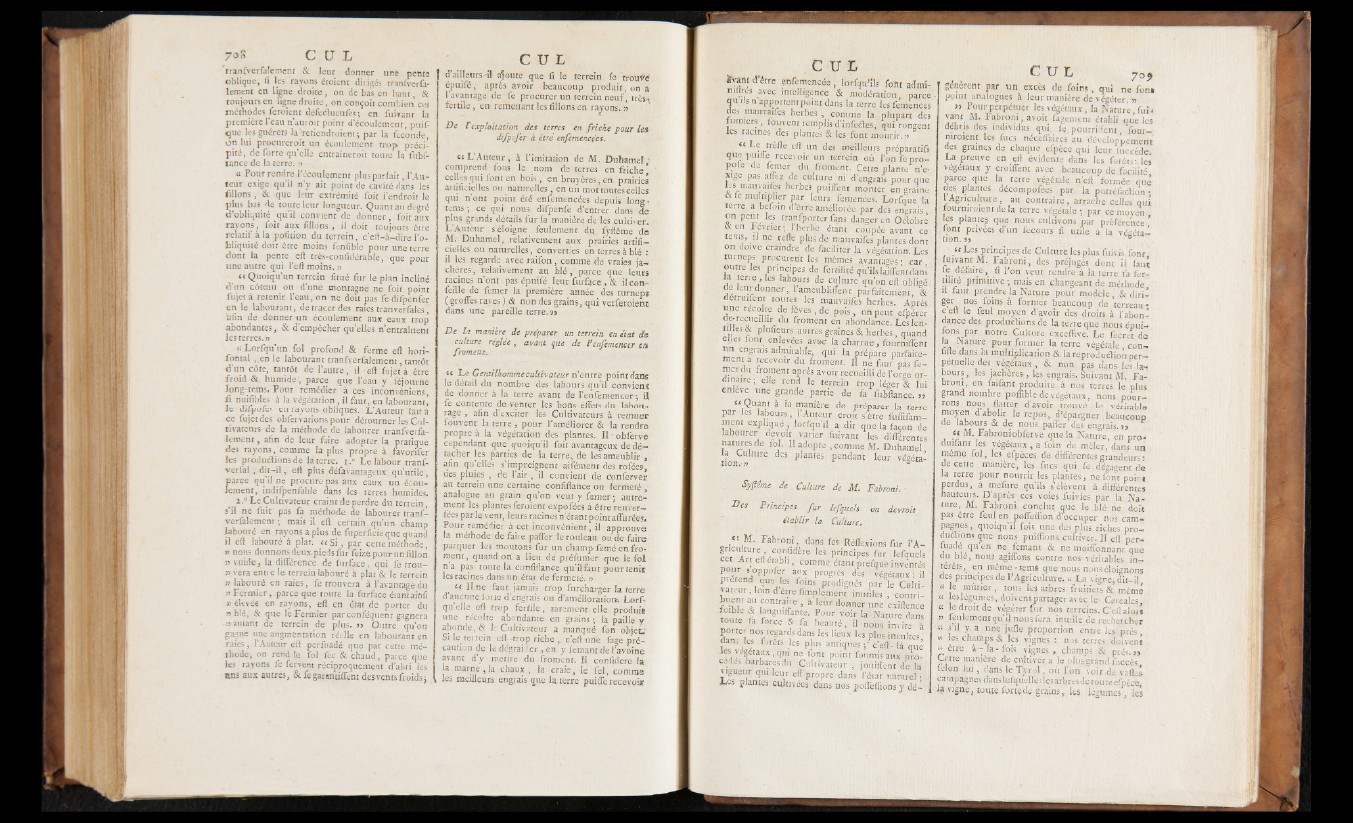 708 CUL
tranſverſalement & leur donner une pente
oblique, ſi les rayons étoient dirigés tranſverſa-
lement en ligne droite, ou de bas en haut, &
toujours en ligne droite, on conçoit combien ces
méthodes ſeroient défectueuſes; en ſuivant la
première l'eau n'auroit point d'écoulement, puiſ-
que les guérêts la retiendroient; par la ſeconde,
on lui procureroit un écoulement trop préci-
pité, de ſorte qu'elle entraîneroit toute la ſubſ-
tance de la terre. »
« Pour rendre l'écoulement plus parfait, l'Au-
teur exige qu'il n'y ait point de cavité dans les
ſillons, & que leur extrémité ſoit l'endroit le
plus bas de toute leur longueur. Quant au degré
d'obliquité qu'il convient de donner, ſoit aux
rayons, ſoit aux ſillons, il doit toujours être
relatif à la poſition du terrein, c'eſt-à-dire l'o-
bliquité doit être moins ſenſible pour une terre
dont la pente eſt très-conſidérable, que pour
une autre qui l'eſt moins. »
« Quoiqu'un terrein ſitué ſur le plan incliné
d'un côteau ou d'une montagne ne ſoit point
ſujet à retenir l'eau, on ne doit pas ſe diſpenſer
en le labourant, de tracer des raies tranſverſales,
afin de donner un écoulement aux eaux trop
abondantes, & d'empêcher qu'elles n'entraînent
les terres. »
« Lorſqu'un ſol profond & ferme eſt hori-
ſontal, en le labourant tranſverſalement, tantôt
d'un côte, tantôt de l'autre, il eſt ſujet à être
froid & humide, parce que l'eau y ſéjourne
long-tems. Pour remédier à ces inconvéniens,
ſi nuiſibles à la végétation, il faut, en labourant,
le diſpoſer en rayons obliques. L'Auteur fait à
ce ſujet des obſervations pour détourner les Cul-
tivateurs de la méthode de labourer tranſverſa-
lement, afin de leur faire adopter la pratique
des rayons, comme la plus propre à favoriſer
les productions de la terre. 1.° Le labour tranſ-
verſal, dit-il, eſt plus déſavantageux qu'utile,
parce qu'il ne procure pas aux eaux un écou-
lement, indiſpenſable dans les terres humides.
2.° Le Cultivateur craint de perdre du terrein,
s'il ne fuit pas ſa méthode de labourer tranſ-
verſalement; mais il eſt certain qu'un champ
labouré en rayons a plus de ſuperficie que quand
il eſt labouré à plat. « Si, par cette méthode,
» nous donnons deux pieds ſur ſeize pour un ſillon
» vuide, la différence de ſurface, qui ſe trou-
» vera entre le terrein labouré à plat & le terrein
» labouré en raies, ſe trouvera à l'avantage du
» Fermier, parce que toute la ſurface étant ainſi
» élevée en rayons, eſt en état de porter du
» blé, & que le Fermier par conſéquent gagnera
» autant de terrein de plus. » Outre qu'on
gagne une augmentation réelle en labourant en
raies, l'Auteur eſt perſuadé que par cette mé-
thode, on rend le ſol ſec & chaud, parce que
les rayons ſe ſervent réciproquement d'abri les
uns aux autres, & ſe garantiſſent des vents froids;
CUL
d'ailleurs il ajoute que ſi le terrein ſe trouve
épuiſé, après avoir beaucoup produit, on a
l'avantage de ſe procurer un terrein neuf, très-
fertile, en remettant les ſillons en rayons. »
De l'exploitation des terres en friche pour les
diſpoſer à être enſemencées.
« L'Auteur, à l'imitation de M. Duhamel,
comprend ſous le nom de terres en friche,
celles qui ſont en bois, en bruyères, en prairies
artificielles ou naturelles, en un mot toutes celles
qui n'ont point été enſemencées depuis long-
tems; ce qui nous diſpenſe d'entrer dans de
plus grands détails ſur la manière de les cultiver.
L'Auteur s'éloigne ſeulement du ſyſtême de
M. Duhamel, relativement aux prairies artifi-
cielles ou naturelles, converties en terres à blé:
il les regarde avec raiſon, comme de vraies ja-
chères, relativement au blé, parce que leurs
racines n'ont pas épuiſé leur ſurface, & il con-
ſeille de ſemer la première année des turneps
(groſſes raves) & non des grains, qui verſeroient
dans une pareille terre. »
De la manière de préparer un terrein en état de
culture réglée, avant que de l'enſemencer en
froment.
« Le Gentilhomme cultivateur n'entre point dans
le détail du nombre des labours qu'il convient
de donner à la terre avant de l'enſemencer; il
ſe contente de venter les bons effets du labou-
rage, afin d'exciter les Cultivateurs à remuer
ſouvent la terre, pour l'améliorer & la rendre
propre à la végétation des plantes. Il obſerve
cependant que quoiqu'il ſoit avantageux de dé-
tacher les parties de la terre, de les ameublir,
afin qu'elles s'imprègnent aiſément des roſées,
des pluies, de l'air, il convient de conſerver
au terrein une certaine conſiſtance ou fermeté,
analogue au grain qu'on veut y ſemer; autre-
ment les plantes ſeroient expoſées à être renver-
ſées par le vent, leurs racines n'étant point aſſurées.
Pour remédier à cet inconvénient, il approuve
la méthode de faire paſſer le rouleau ou de faire
parquer les moutons ſur un champ ſemé en fro-
ment, quand on a lieu de préſumer que le ſol
n'a pas toute la conſiſtance qu'il faut pour tenir
les racines dans un état de fermeté. »
« Il ne faut jamais trop ſurcharger la terre
d'aucune ſorte d'engrais ou d'amélioration. Lorſ-
qu'elle eſt trop fertile, rarement elle produit
une récolte abondante en grains; la paille y
abonde, & le Cultivateur a manqué ſon objet.
Si le terrein eſt trop riche, c'eſt une ſage pré-
caution de le dégraiſſer, en y ſemant de l'avoine
avant d'y mettre du froment. Il conſidère la
la marne, la chaux, la craie, le ſel, comme
les meilleurs engrais que la terre puiſſe recevoir
CUL
avant d'être enſemencée, lorſqu'ils ſont admi-
niſtrés avec intelligence & modération, parce
qu'ils n'apportent point dans la terre les ſemences
des mauvaiſes herbes, comme la plupart des
fumiers, ſouvent remplis d'inſectes, qui rongent
les racines des plantes & les font mourir. »
« Le trèfle eſt un des meilleurs préparatifs
que puiſſe recevoir un terrein où l'on ſe pro-
poſe de ſemer du froment. Cette plante n'e-
xige pas aſſez de culture ni d'engrais pour que
les mauvaiſes herbes puiſſent monter en graine
& ſe multiplier par leurs ſemences. Lorſque la
terre a beſoin d'être améliorée par des engrais,
on peut les tranſporter ſans danger en Octobre
& en Février; l'herbe étant coupée avant ce
tems, il ne reſte plus de mauvaiſes plantes dont
on doive craindre de faciliter la végétation. Les
turneps procurent les mêmes avantages; car,
outre les principes de fertilité qu'ils laiſſent dans
la terre, les labours de culture qu'on eſt obligé
de leur donner, l'ameubliſſent parfaitement, &
détruiſent toutes les mauvaiſes herbes. Après
une récolte de fèves, de pois, on peut eſpérer
de recueillir du froment en abondance. Les len-
tilles & pluſieurs autres graines & herbes, quand
elles ſont enlevées avec la charrue, fourniſſent
un engrais admirable, qui la prépare parfaite-
ment à recevoir du froment. Il ne faut pas ſe-
mer du froment après avoir recueilli de l'orge or-
dinaire; elle rend le terrein trop léger & lui
enlève une grande partie de ſa ſubſtance. »
« Quant à la manière de préparer la terre
par les labours, l'Auteur croit s'être ſuffiſam-
ment expliqué, lorſqu'il a dit que la façon de
labourer devoit varier ſuivant les différentes
natures de ſol. Il adopte, comme M. Duhamel,
la Culture des plantes pendant leur végéta-
tion. »
Syſtême de Culture de M. Fabroni.
Des Principes ſur leſquels on devroit
établir la Culture.
« M. Fabroni, dans ſes Réflexions ſur l'A-
griculture, conſidère les principes ſur leſquels
cet Art eſt établi, comme étant preſque inventés
pour s'oppoſer aux progrès des végétaux: il
prétend que les ſoins prodigués par le Culti-
vateur, loin d'être ſimplement inutiles, contri-
buent au contraire, à leur donner une exiſtence
foible & languiſſante. Pour voir la Nature dans
toute ſa force & ſa beauté, il nous invite à
porter nos regards dans les lieux les plus incultes,
dans les forêts les plus antiques; c'eſt-là que
les végétaux, qui ne ſont point ſoumis aux pro-
cédés barbares du Cultivateur, jouiſſent de la
vigueur qui leur eſt propre dans l'état naturel;
Les plantes cultivées dans nos poſſeſſions y dé-
CUL 709
génèrent par un excès de ſoins, qui ne ſont
point analogues à leur manière de végéter. »
» Pour perpétuer les végétaux, la Nature, ſui-
vant M. Fabroni, avoit ſagement établi que les
débris des individus qui ſe pourriſſent, four-
niroient les ſucs néceſſaires au développement
des graines de chaque eſpèce qui leur ſuccède.
La preuve en eſt évidente dans les forêts: les
végétaux y croiſſent avec beaucoup de facilité,
parce que la terre végétale n'eſt formée que
des plantes décompoſées par la putréfaction;
l'Agriculture, au contraire, arrache celles qui
fourniroient de la terre végétale; par ce moyen,
les plantes que nous cultivons par préférence,
ſont privées d'un ſecours ſi utile à la végéta-
tion. »
« Les principes de Culture les plus ſuivis ſont,
ſuivant M. Fabroni, des préjugés dont il faut
ſe défaire, ſi l'on veut rendre à la terre ſa fer-
tilité primitive; mais en changeant de méthode,
il faut prendre la Nature pour modèle, & diri-
ger nos ſoins à former beaucoup de terreau:
c'eſt le ſeul moyen d'avoir des droits à l'abon-
dance des productions de la terre que nous épui-
ſons par notre Culture exceſſive. Le ſecret de
la Nature pour former la terre végétale, con-
ſiſte dans la multiplication & la reproduction per-
pétuelle des végétaux, & non pas dans les la-
bours, les jachères, les engrais. Suivant M. Fa-
broni, en faiſant produire à nos terres le plus
grand nombre poſſible de végétaux, nous pour-
rons nous flatter d'avoir trouvé le véritable
moyen d'abolir le repos, d'épargner beaucoup
de labours & de nous paſſer des engrais. »
« M. Fabroni obſerve que la Nature, en pro-
duiſant les végétaux, a ſoin de mêler, dans un
même ſol, les eſpèces de différentes grandeurs:
de cette manière, les ſucs qui ſe dégagent de
la terre pour nourrir les plantes, ne ſont point
perdus, à meſure qu'ils s'élèvent à différentes
hauteurs. D'après ces voies ſuivies par la Na-
ture, M. Fabroni conclut que le blé ne doit
pas être ſeul en poſſeſſion d'occuper nos cam-
pagnes, quoiqu'il ſoit une des plus riches pro-
ductions que nous puiſſions cultiver. Il eſt per-
ſuadé qu'en ne ſemant & ne moiſſonnant que
du blé, nous agiſſons contre nos véritables in-
térêts, en même-tems que nous nous éloignons
des principes de l'Agriculture. « La vigne, dit-il,
« le mûrier, tous les arbres fruitiers & même
« les légumes, doivent partager avec les Céréales,
« le droit de végéter ſur nos terreins. C'eſt alors
» ſeulement qu'il nous ſera inutile de rechercher
« s'il y a une juſte proportion entre les prés,
« les champs & les vignes: nos terres doivent
» être à-la-fois vignes, champs & prés. »
Cette manière de cultiver a le plus grand ſuccès,
ſelon lui, dans le Tyrol, où l'on voit de vaſtes
campagnes dans leſquelles les arbres de toute eſpèce,
la vigne, toute ſorte de grains, les légumes, les